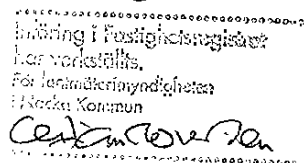 Införing i Fastighetsregistret
har verkställts.
För lantmäterimyndigheten
i Nacka Kommun